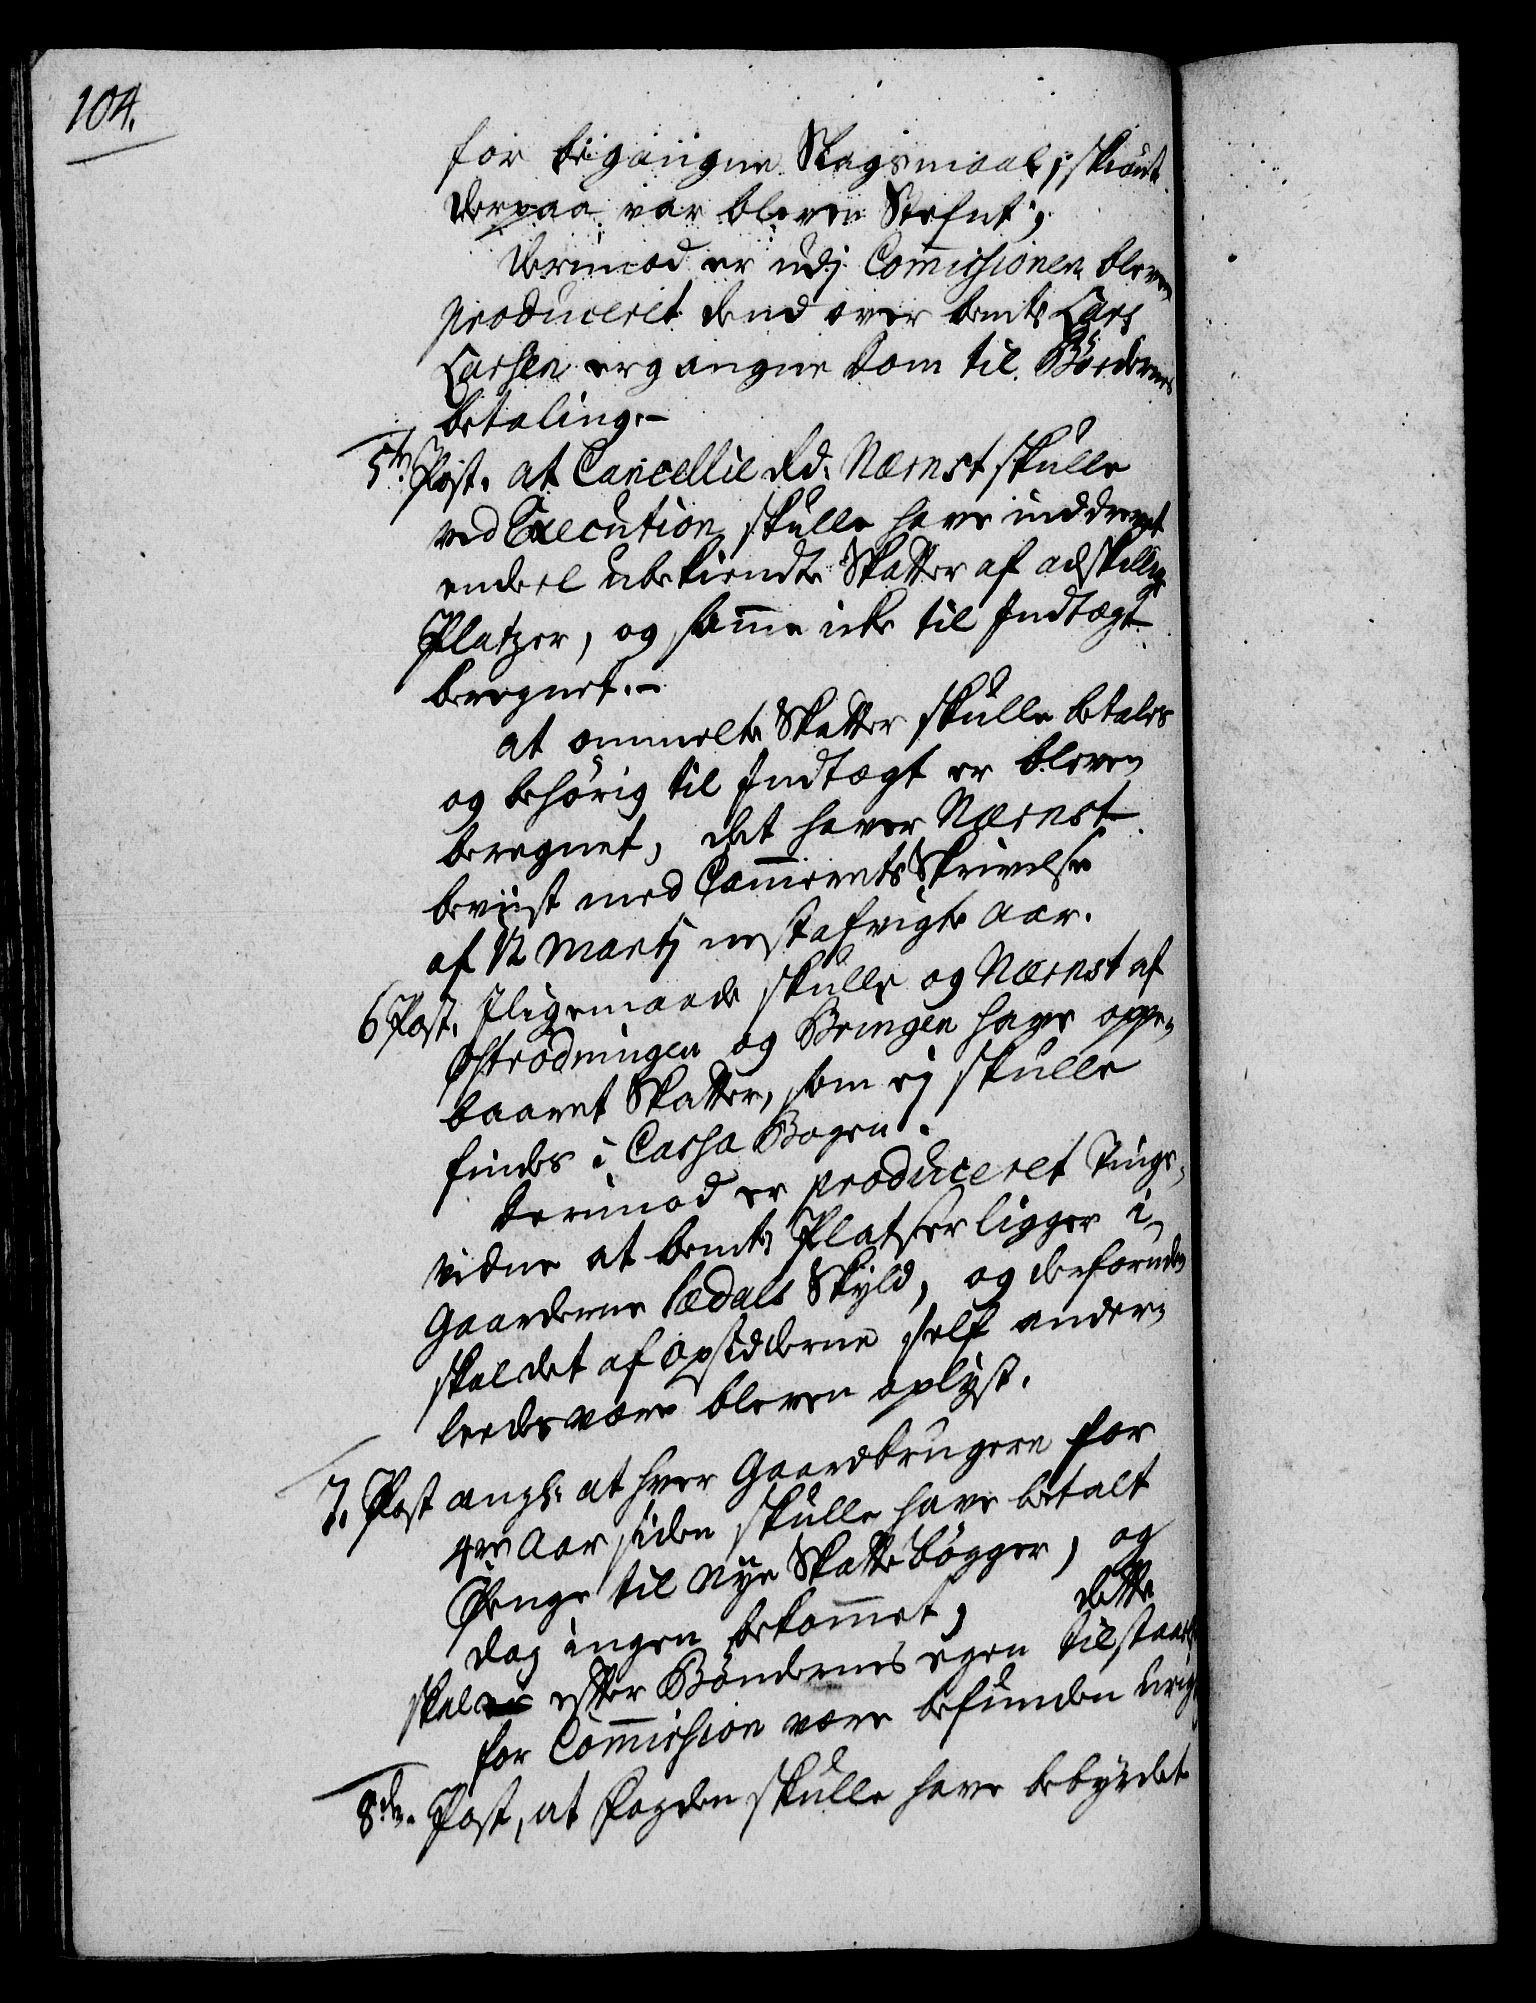 104.
for begangne Slagsmaal, skiønt
derpaa var bleven Stefnt;
Derimod er udj Commissionen bleven
produceret dend over bemte Lars
Larsen ergangne Dom til Bødernes
betaling.-
5te Post. at Cancellie Rd. Nærnst skulle
ved Execution skulle have inddrevet
endeel ubekiendte Skatter af adskillige
Platzer, og samme icke til Indtægt
beregnet.-
at ommelte Skatter skulle betales
og behørig til Indtægt er bleven
beregnet, det haver Nærnst
beviist med Cammerets Skrivelse
af 12 Martj nestafvigte Aar.
6 Post. Iligemaade skulle og Nærnst af
Ostrødningen og Bringen have oppe-
baaret Skatter, som ej skulle
findes i Cassa Bogen.
Derimod er produceret Tings-
vidne at bemte Platser ligger i
Gaarderne Lædals Skyld, og desforuden
skal det af Opsidderne self ander-
leedes være bleven oplyst.
7. Post angl. at hver Gaardbrugere for
4re Aar siden skulle have betalt
Penge til Nye Skatte bøgger, og
dog ingen bekommet, dette
skal efter Bøndernes egen tilstaaelse
for Commission være befunden urigtig
8de. Post, at Fogden skulle have bebyrdet